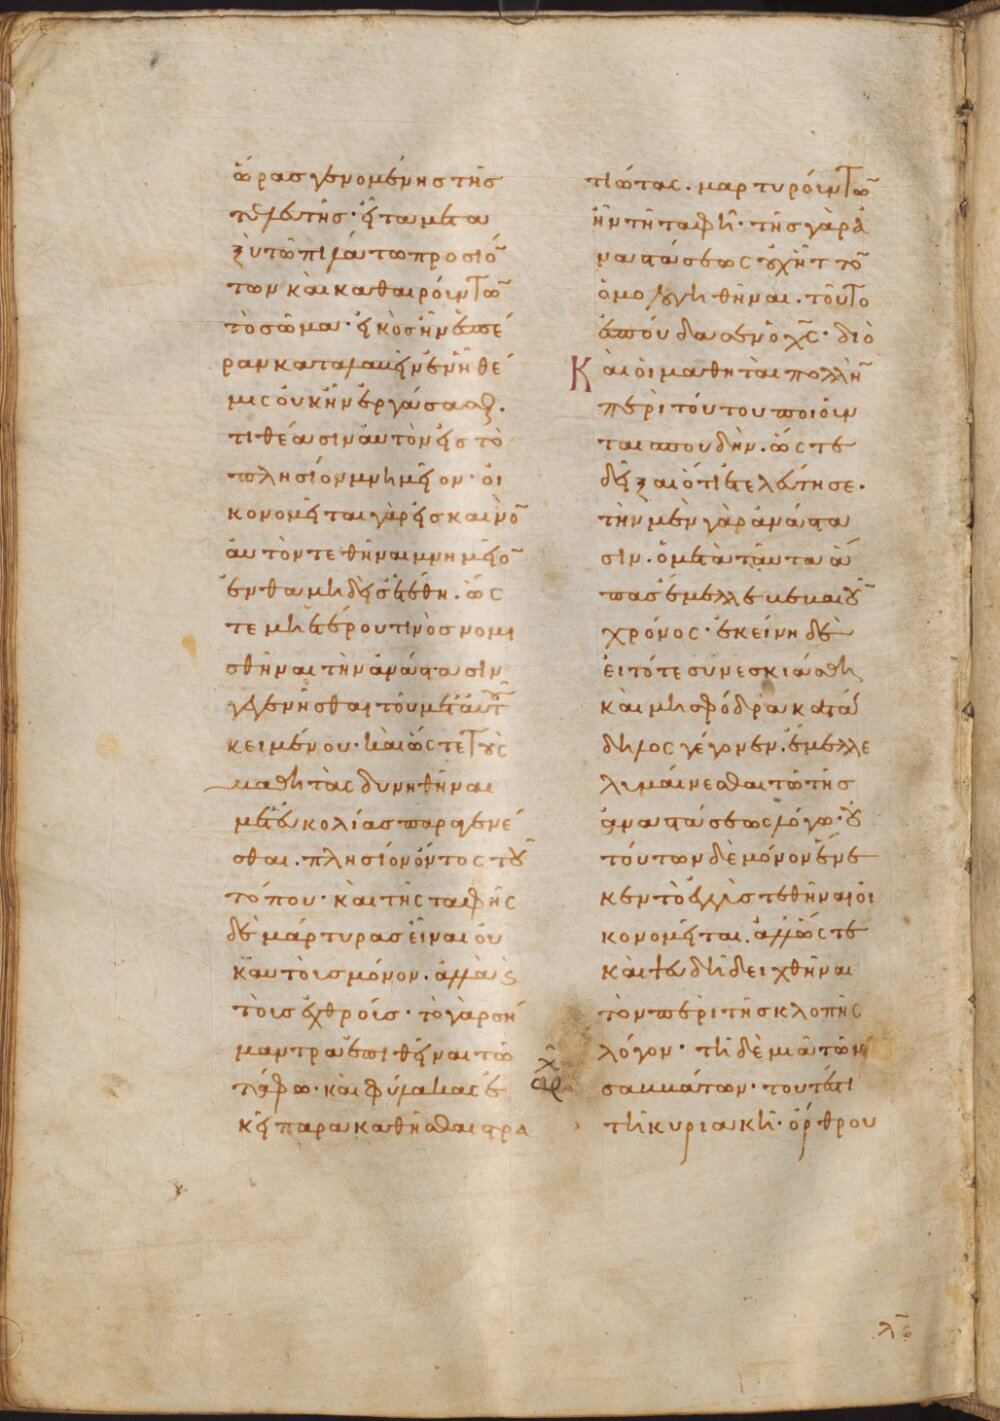 ὥρας γενομένης τῆς
τελευτῆς· εἶτα μετα
ξὺ τῶ πιλάτω προσιόν
των καὶ καθαιρούντων
τὸ σῶμα· εἰκὸς ἦν ἑσπέ
ραν καταλαβεῖν ἐν ἧ θέ
μις οὐκ ἦν ἐργάσασθαι.
τιθέασιν αὐτὸν εἰς τὸ
πλησίον μνημεῖον· οἰ
κονομεῖται γὰρ εἰς καινὸν
αὐτὸν τεθῆναι μνημεῖον
ἔνθα μηδεὶς ἐτέθη. ὥς
τε μὴ ἑτέρου τινὸς νομι
σθῆναι τὴν ἀνάστασιν
γεγενῆσθαι τοῦ μετ' αὐτοῦ
κειμένου· καὶ ὥς τε τοὺς
μαθητὰς δυνηθῆναι
μετ' εὐκολίας παραγενέ
σθαι. πλησίον ὄντος τοῦ
τόπου· καὶ τῆς ταφῆς
δὲ μάρτυρας εἶναι οὐ
κ αὐτοὺς μόνον. ἀλλὰ καὶ
τοὺς ἐχθρούς· τὸ γὰρ σή
μαντρα ἐπιθεῖναι τῶ
τάφω· καὶ φύλακας ἐ
κεῖ παρακαθῆσθαι στρα
τιώτας. μαρτυρούντων
ἦν τῆ ταφῆ· τῆς γὰρ ἀ
ναστάσεως οὐχ ἧττον
ὁμολογηθῆναι. τοῦτο
ἐσπούδασεν ὁ χς· διὸ
Καὶ οἱ μαθηταὶ πολλὴν
περὶ τούτου ποιοῦν
ται σπουδὴν. ὥς τε
δεῖξαι ὅτι ἐτελεύτησε.
τὴν μὲν γὰρ ἀνάστα
σιν. ὁ μετὰ ταῦτα ἅ
πας ἔμελλε βεβαιοῦν
χρόνος· ἐκείνη δὲ
εἰ τότε συνεσκιάσθη
καὶ μὴ σφόδρα κατά
δηλος γέγονεν. ἔμελλε
λυμαίνεσθαι τῶ τῆς
ἀναστάσεως λόγω· οὐ
τούτων δὲ μόνον ἕνε
κεν τὸ ἐγγὺς τεθῆναι οἰ
κονομεῖται. ἀλλ' ὥς τε
καὶ ψευδῆ δειχθῆναι
τὸν περὶ τῆς κλοπῆς
λόγον· τῆ δὲ μιᾶ τῶν
σαββάτων· τουτέστι
τῆ κυριακῆ· ὄρθρου